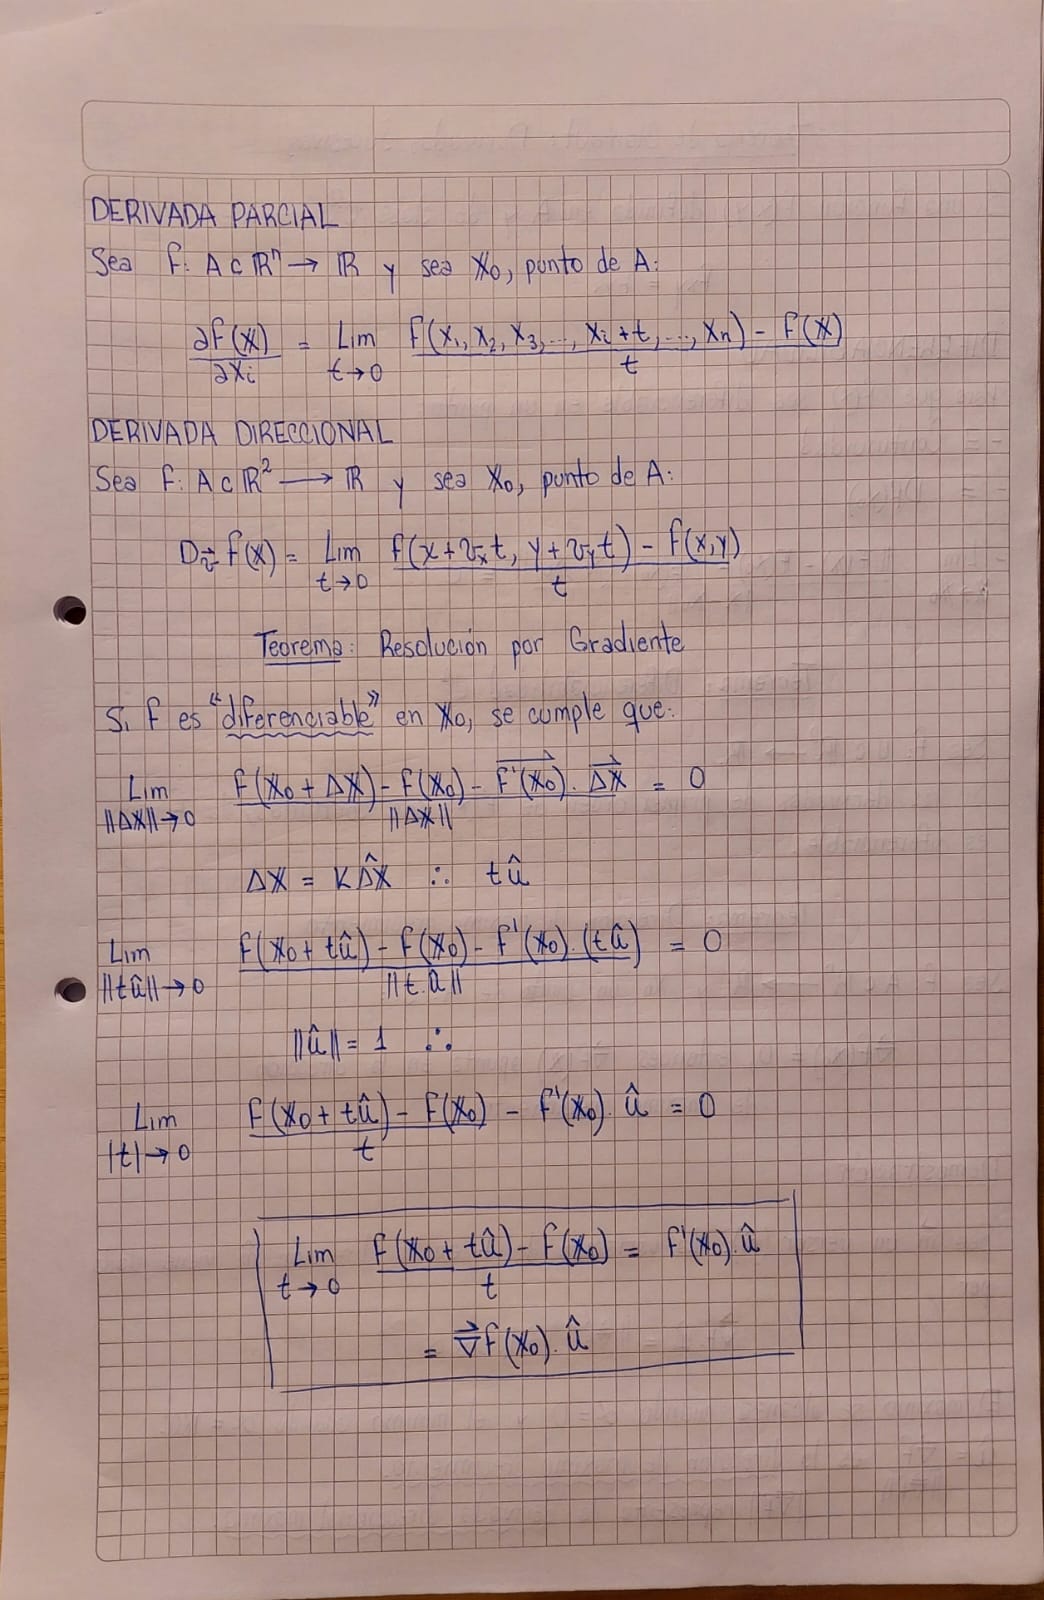 DERIVADA PARCIAL
Sea f: A ⊂ ℝⁿ → ℝ y sea 𝕏₀, punto de A:
∂f(𝕏)/∂xᵢ = Lim t→0 (f(x₁, x₂, x₃, ..., xᵢ+t, ..., xₙ) - f(𝕏))/t
DERIVADA DIRECCIONAL
Sea f: A ⊂ ℝ² → ℝ y sea 𝕏₀, punto de A:
D_v⃗ f(𝕏) = Lim t→0 (f(x+vₓt, y+v_y t) - f(x,y))/t
Teorema: Resolución por Gradiente
Si f es "diferenciable" en 𝕏₀, se cumple que:
Lim ||Δ𝕏||→0 (f(𝕏₀ + Δ𝕏) - f(𝕏₀) - f'(𝕏₀)⃗ . Δ𝕏⃗)/||Δ𝕏|| = 0
Δ𝕏 = KΔ𝕏̂ ∴ tû
Lim ||tû||→0 (f(𝕏₀ + tû) - f(𝕏₀) - f'(𝕏₀).(tû))/||t.û|| = 0
||û|| = 1 ∴
Lim |t|→0 (f(𝕏₀ + tû) - f(𝕏₀))/t - f'(𝕏₀). û = 0
Lim t→0 (f(𝕏₀ + tû) - f(𝕏₀))/t = f'(𝕏₀).û
= ∇⃗f(𝕏₀). û